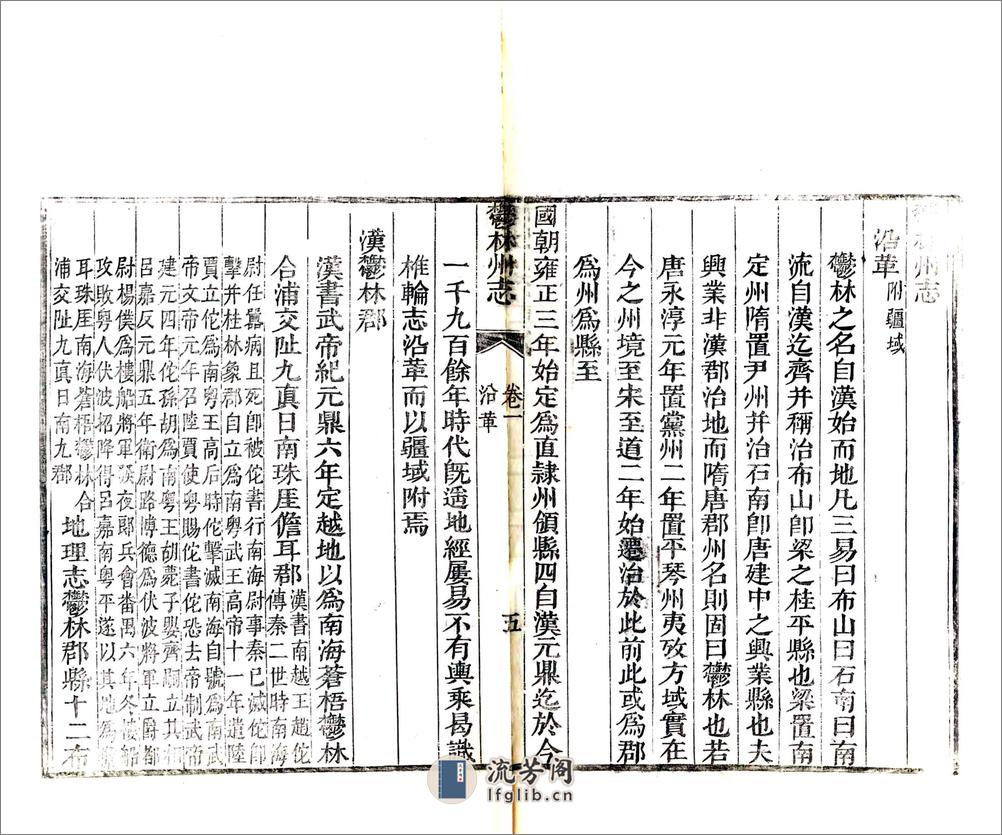 林州志
沿革附疆域
鬱林之名自漢始而地凡三易曰布山曰石南曰南
流自漢迄齊并稱治布山卽梁之桂平縣也梁置南
定州隋置尹州并治石南卽唐建中之興業縣也夫
興業非漢郡治地而隋唐郡州名則固曰鬱林也若
唐永淳元年置黨州二年置平琴州夷攷方域實在
今之州境至宋至道二年始遷治於此前此或爲郡
爲州爲縣至
國朝雍正三年始定爲直隷州領縣四自漢元鼎迄於今
鬱林州志 卷一 沿革 五
一千九百餘年時代旣遥地經屢易不有輿乘曷識
椎輪志沿革而以疆域附焉
漢鬱林郡
漢書武帝紀元鼎六年定越地以爲南海蒼梧鬱林
合浦交阯九眞日南珠厓儋耳郡
漢書南越王趙佗
傳秦二世時南海
尉任囂病且死卽被佗書行南海尉事秦已滅佗卽
擊并桂林象郡自立爲南粵武王高帝十一年遣陸
賈立佗爲南粵王高后時佗擊滅南海自號爲南武
帝文帝元年召陸賈使粵賜佗書佗恐去帝制武帝
建元四年佗孫胡爲南粵王胡薨子嬰齊嗣立其相
呂嘉反元鼎五年衛尉路博德爲伏波將軍主爵都
尉楊僕爲樓船將軍發夜郎兵會番禺六年冬樓船
攻敗粵人伏波招降得呂嘉南粵平遂以其地爲儋
耳珠厓南海蒼梧鬱林合
浦交阯九真日南九郡
地理志鬱林郡縣十二布
流芳阁
lfglib.cn